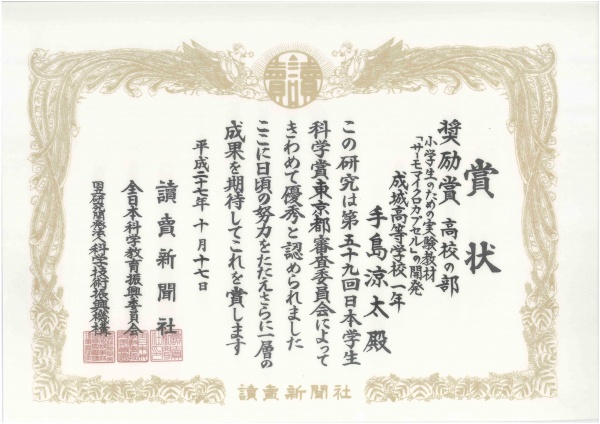 賞状
奨励賞 高校の部
小学生のための実験教材
「サーモマイクロカプセル」の開発
成城高等学校一年
手島涼太殿
この研究は第五十九回日本学生
科学賞東京都審査委員会によって
きわめて優秀と認められました
ここに日頃の努力をたたえさらに一層の
成果を期待してこれを賞します
平成二十七年十月十七日
讀賣新聞社
全日本科学教育振興委員会
国立研究開発法人科学技術振興機構
讀賣新聞社